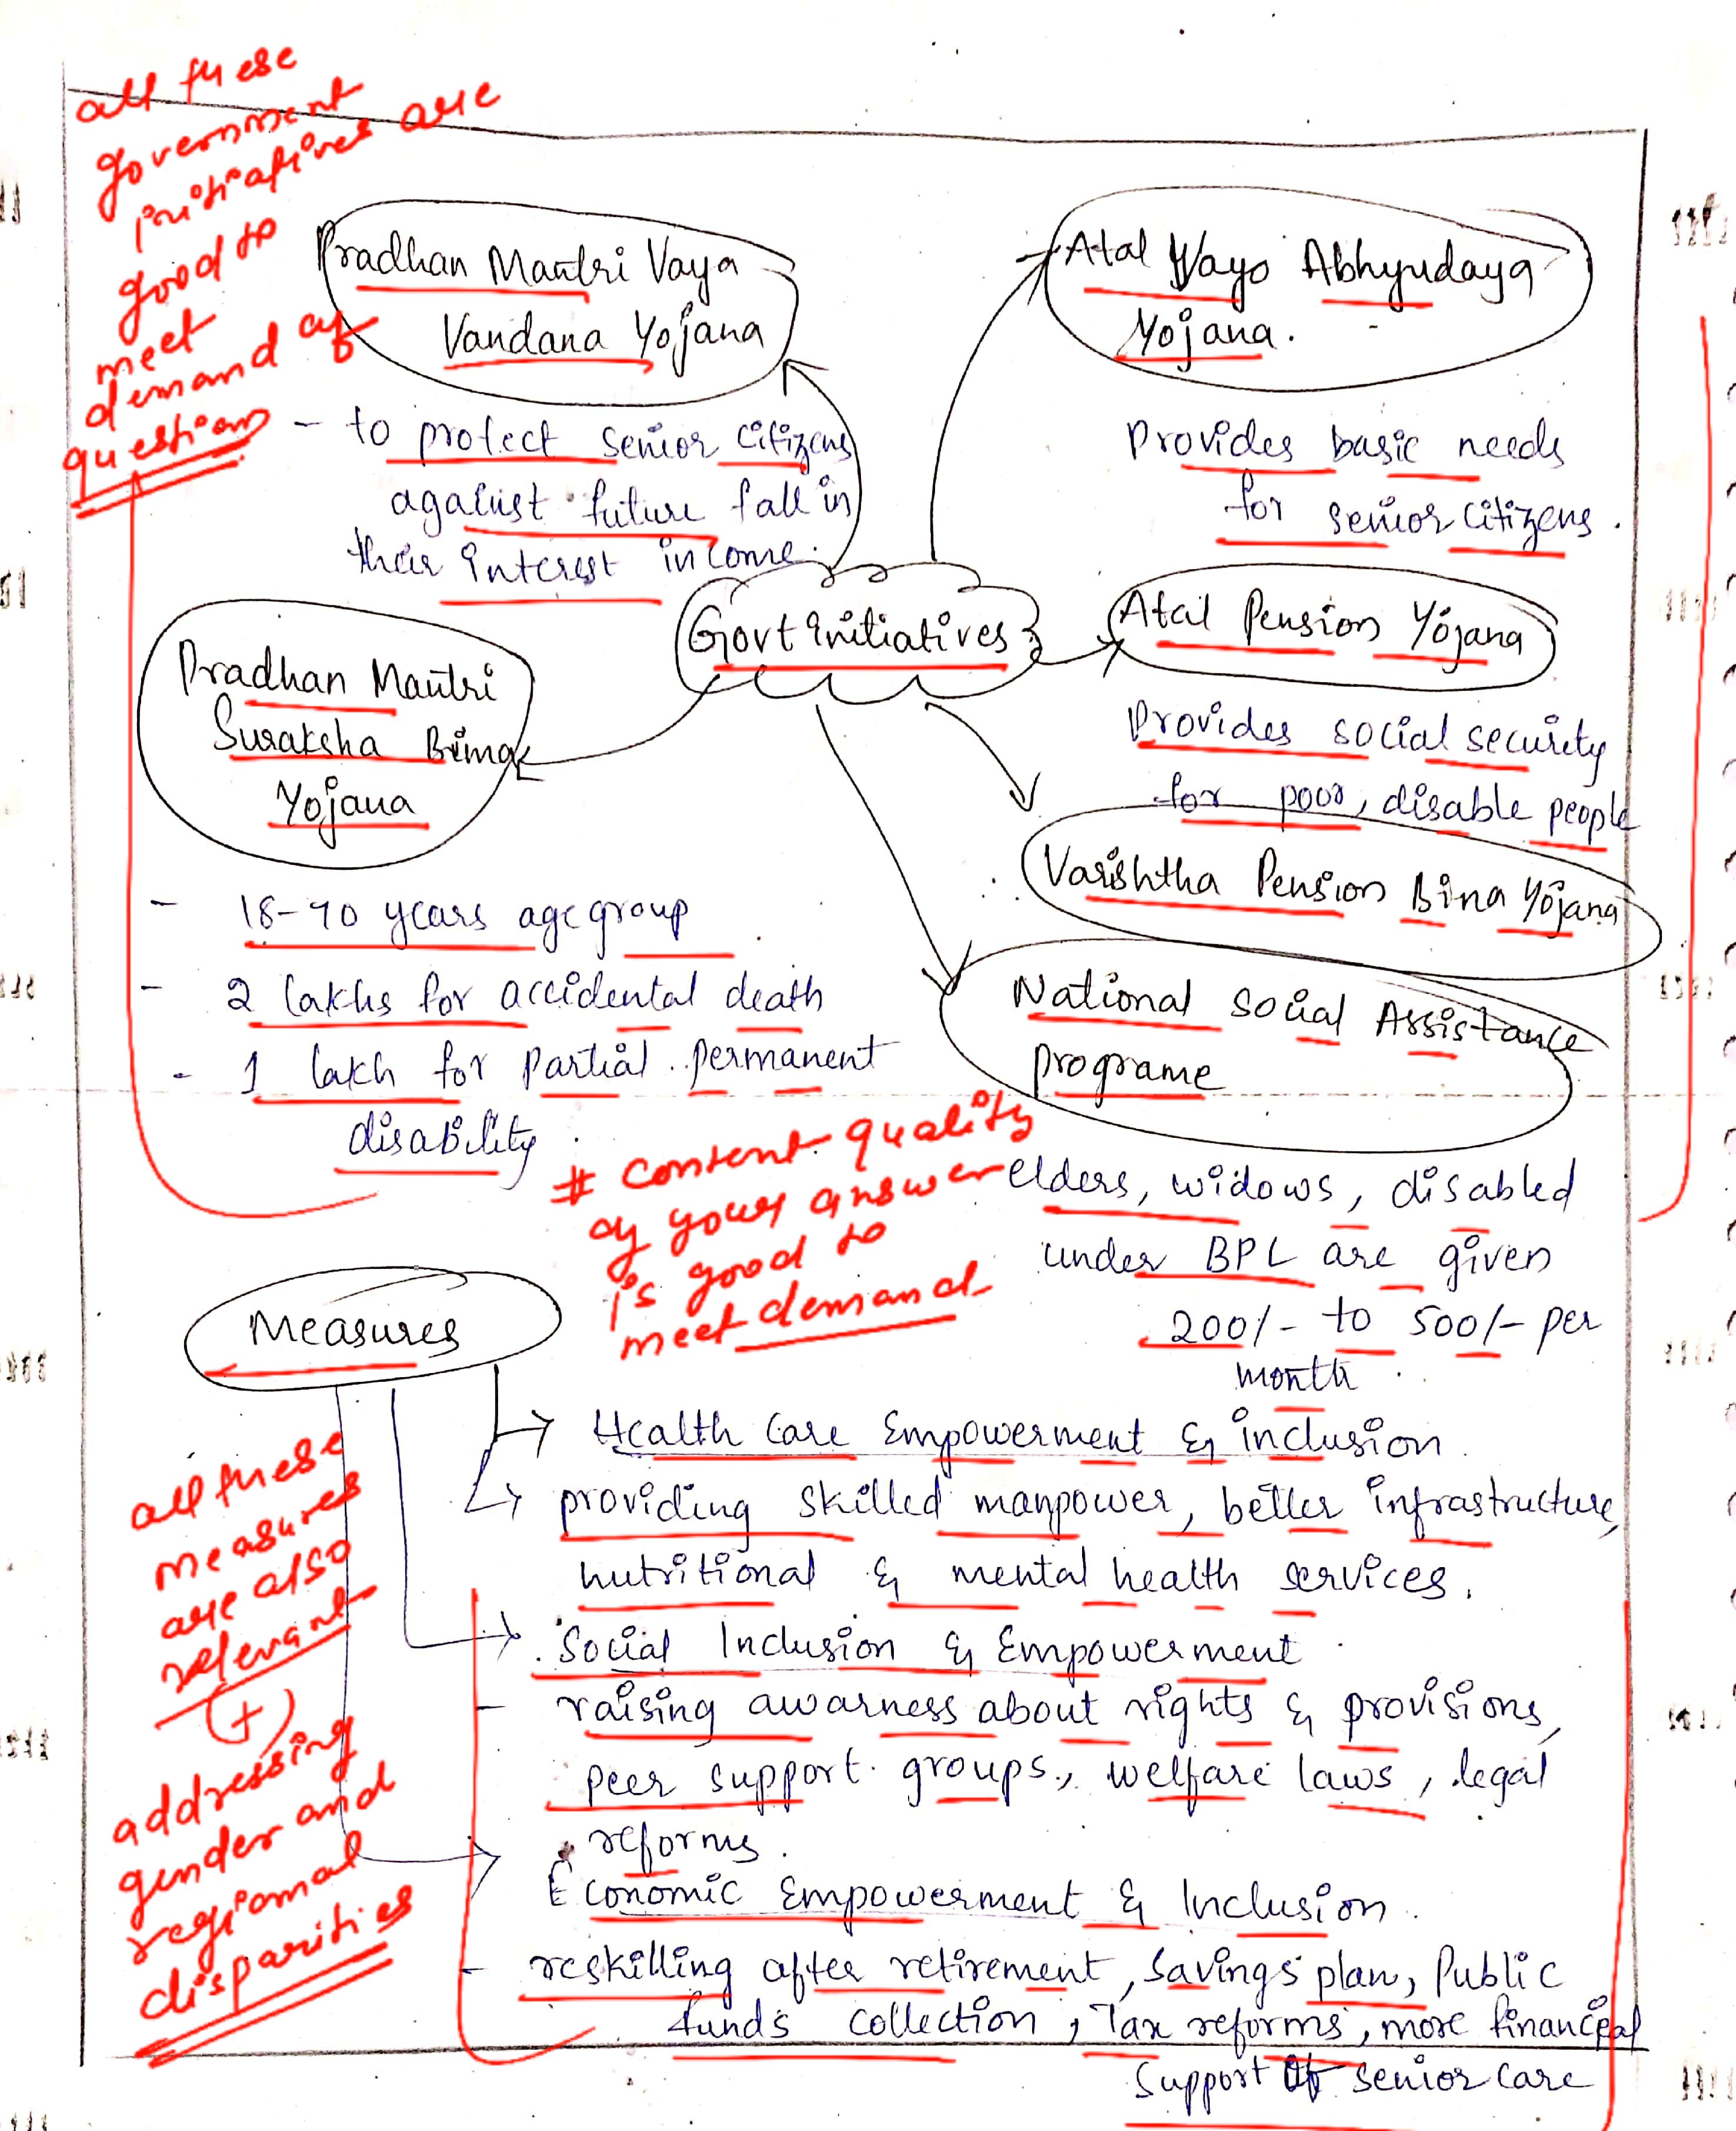 all these
government
initiatives are
good to
meet
demand of
question
Pradhan Mantri Vaya
Vandana Yojana
- to protect senior citizens
against future fall in
their interest income.
Atal Vayo Abhyudaya
Yojana.
Provides basic needs
for senior citizens.
Govt initiatives
Atal Pension Yojana
Provides social security
for poor, disable people
Pradhan Mantri
Suraksha Bima
Yojana
- 18-70 years age group
- 2 lakhs for accidental death
- 1 lakh for partial permanent
disability.
Varishtha Pension Bina Yojana
National Social Assistance
programe
elders, widows, disabled
under BPL are given
200/- to 500/- per
month.
# Content quality
of your answer
is good to
meet demand
Measures
→ Health Care Empowerment & inclusion.
→ providing skilled manpower, better infrastructure,
nutritional & mental health services.
all these
measures
are also
relevant
(+)
addressing
gender and
regional
disparities
→ Social Inclusion & Empowerment
- raising awarness about rights & provisions,
peer support groups, welfare laws, legal
reforms.
→ Economic Empowerment & Inclusion.
- reskilling after retirement, savings plan, Public
funds collection, Tax reforms, more financial
support of senior care